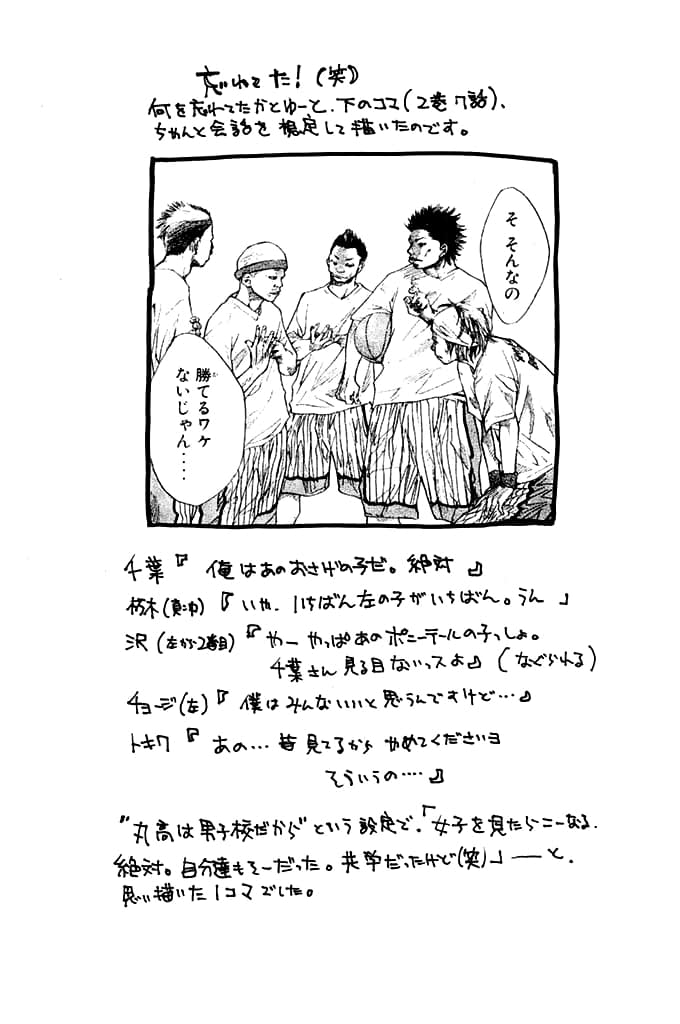 忘れてた！(笑)
何を忘れてたかとゆーと、下のコマ(2巻7話)、
ちゃんと会話を想定して描いたのです。
そ そんなの
勝てるワケ
ないじゃん‥‥
千葉『俺はあのおさげの子だ。絶対』
朽木(真ン中)『いや、いちばん左の子がいちばん。うん」
沢(左から2番目)『やー やっぱあのポニーテールの子っしょ。
千葉さん見る目ないっスよ』(なぐられる)
チョージ(左)『僕はみんないいと思うんですけど…』
トキワ『あの…皆見てるから やめてくださいヨ
そういうの‥‥』
"丸高は男子校だから"という設定で、「女子を見たらこーなる、
絶対。自分達もそーだった。共学だったけど(笑)」――と、
思い描いた1コマでした。